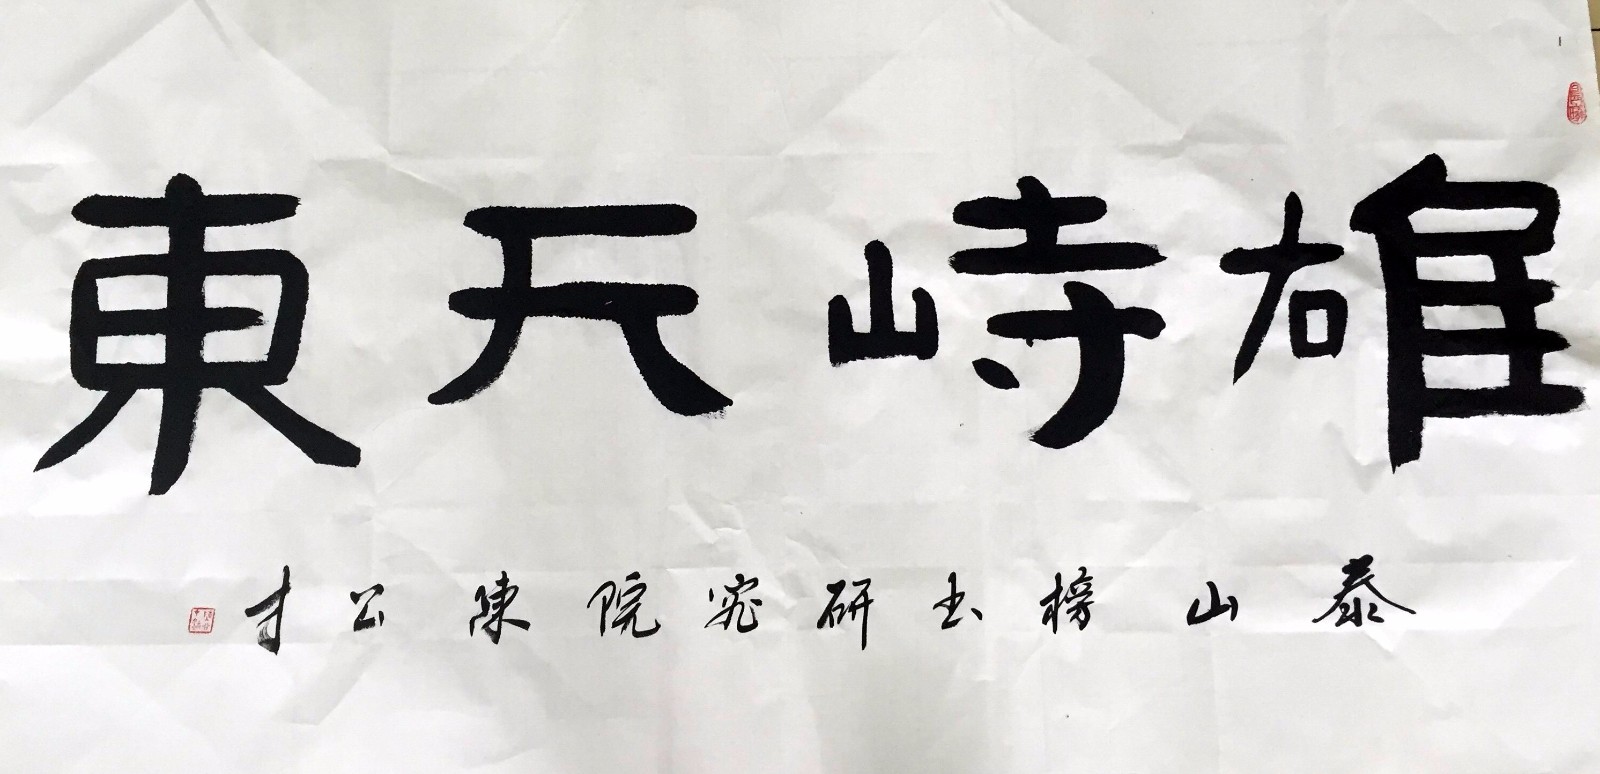 雄峙天東
泰山榜书研究院陳公才